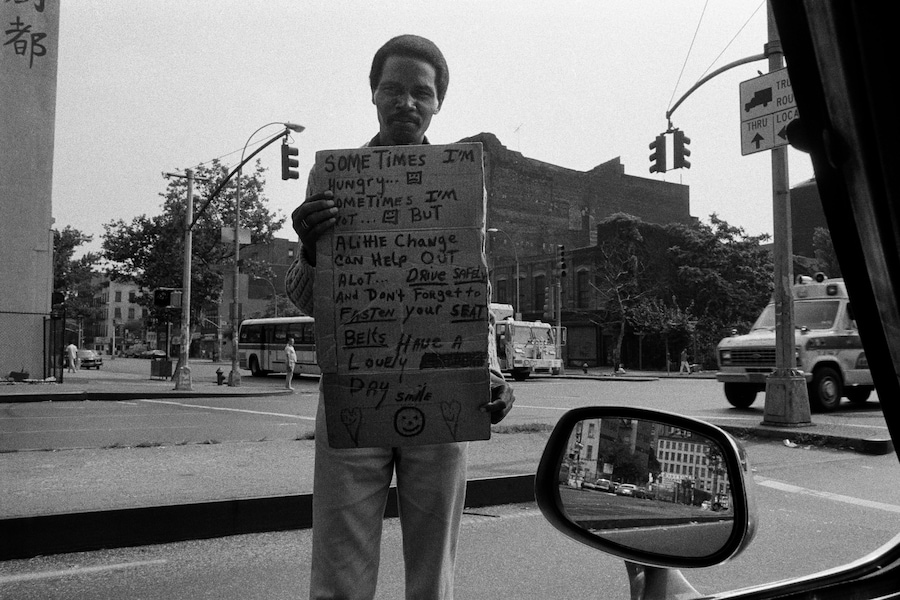 都
SOMETIMES I'M
HUNGRY...
SOMETIMES I'M
NOT... BUT
A Little Change
CAN HELP OUT
ALOT... DRIVE SAFELY
AND DON'T FORGET to
FASTEN your SEAT
BELTS HAVE A
LOVELY
DAY smile
THRU
LOCAL